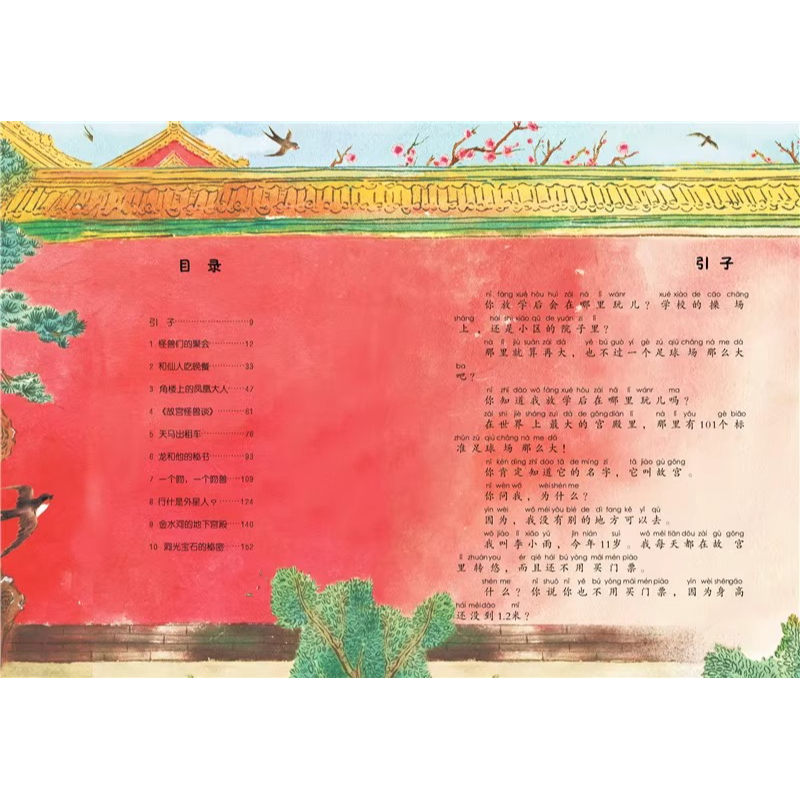 目 录
引 子························9
1 怪兽们的聚会············12
2 和仙人吃晚餐············33
3 角楼上的凤凰大人····47
4 《故宫怪兽谈》·········61
5 天马出租车···············76
6 龙和他的秘书············93
7 一个吻，一个吻兽···109
8 行什是外星人？·······124
9 金水河的地下宫殿····140
10 洞光宝石的秘密·····152
引 子
nǐ fàng xué hòu huì zài nǎ lǐ wánr xué xiào de cāo chǎng
你放学后会在哪里玩儿？学校的操场
shàng hái shì xiǎo qū de yuàn zi lǐ
上，还是小区的院子里？
nà lǐ jiù suàn zài dà yě bú guò yí gè zú qiú chǎng nà me dà
那里就算再大，也不过一个足球场那么大
ba
吧？
nǐ zhī dào wǒ fàng xué hòu zài nǎ lǐ wánr ma
你知道我放学后在哪里玩儿吗？
zài shì jiè shang zuì dà de gōng diàn lǐ nà lǐ yǒu gè biāo
在世界上最大的宫殿里，那里有101个标
zhǔn zú qiú chǎng nà me dà
准足球场那么大！
nǐ kěn dìng zhī dào tā de míng zi tā jiào gù gōng
你肯定知道它的名字，它叫故宫。
nǐ wèn wǒ wèi shén me
你问我，为什么？
yīn wèi wǒ méi yǒu bié de dì fang kě yǐ qù
因为，我没有别的地方可以去。
wǒ jiào lǐ xiǎo yǔ jīn nián suì wǒ měi tiān dōu zài gù gōng
我叫李小雨，今年11岁。我每天都在故宫
lǐ zhuàn you ér qiě hái bú yòng mǎi mén piào
里转悠，而且还不用买门票。
shén me nǐ shuō nǐ yě bú yòng mǎi mén piào yīn wèi shēn gāo
什么？你说你也不用买门票，因为身高
hái méi dào mǐ
还没到1.2米？